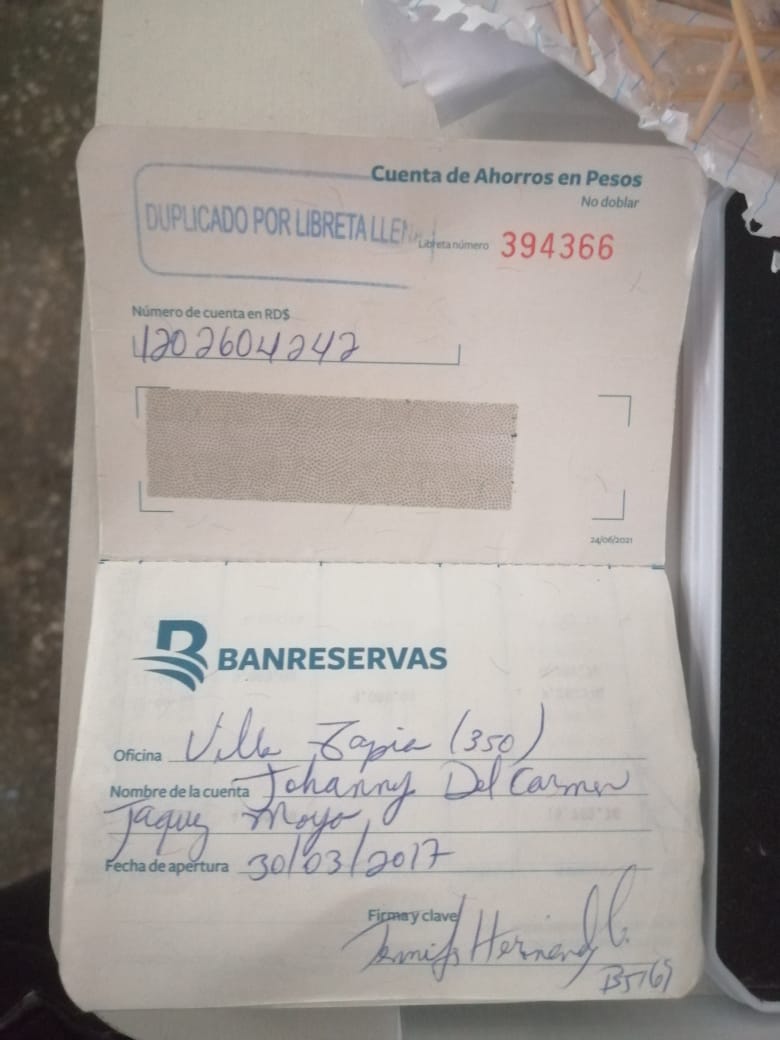 Cuenta de Ahorros en Pesos
No doblar
DUPLICADO POR LIBRETA
Libreta número 394366
Número de cuenta en RD$
1202604242
24/06/2021
BANRESERVAS
Oficina Villa Tapia (350)
Nombre de la cuenta Johanny Del Carmen
Jaquez Moya
Fecha de apertura 30/03/2017
Firma y clave